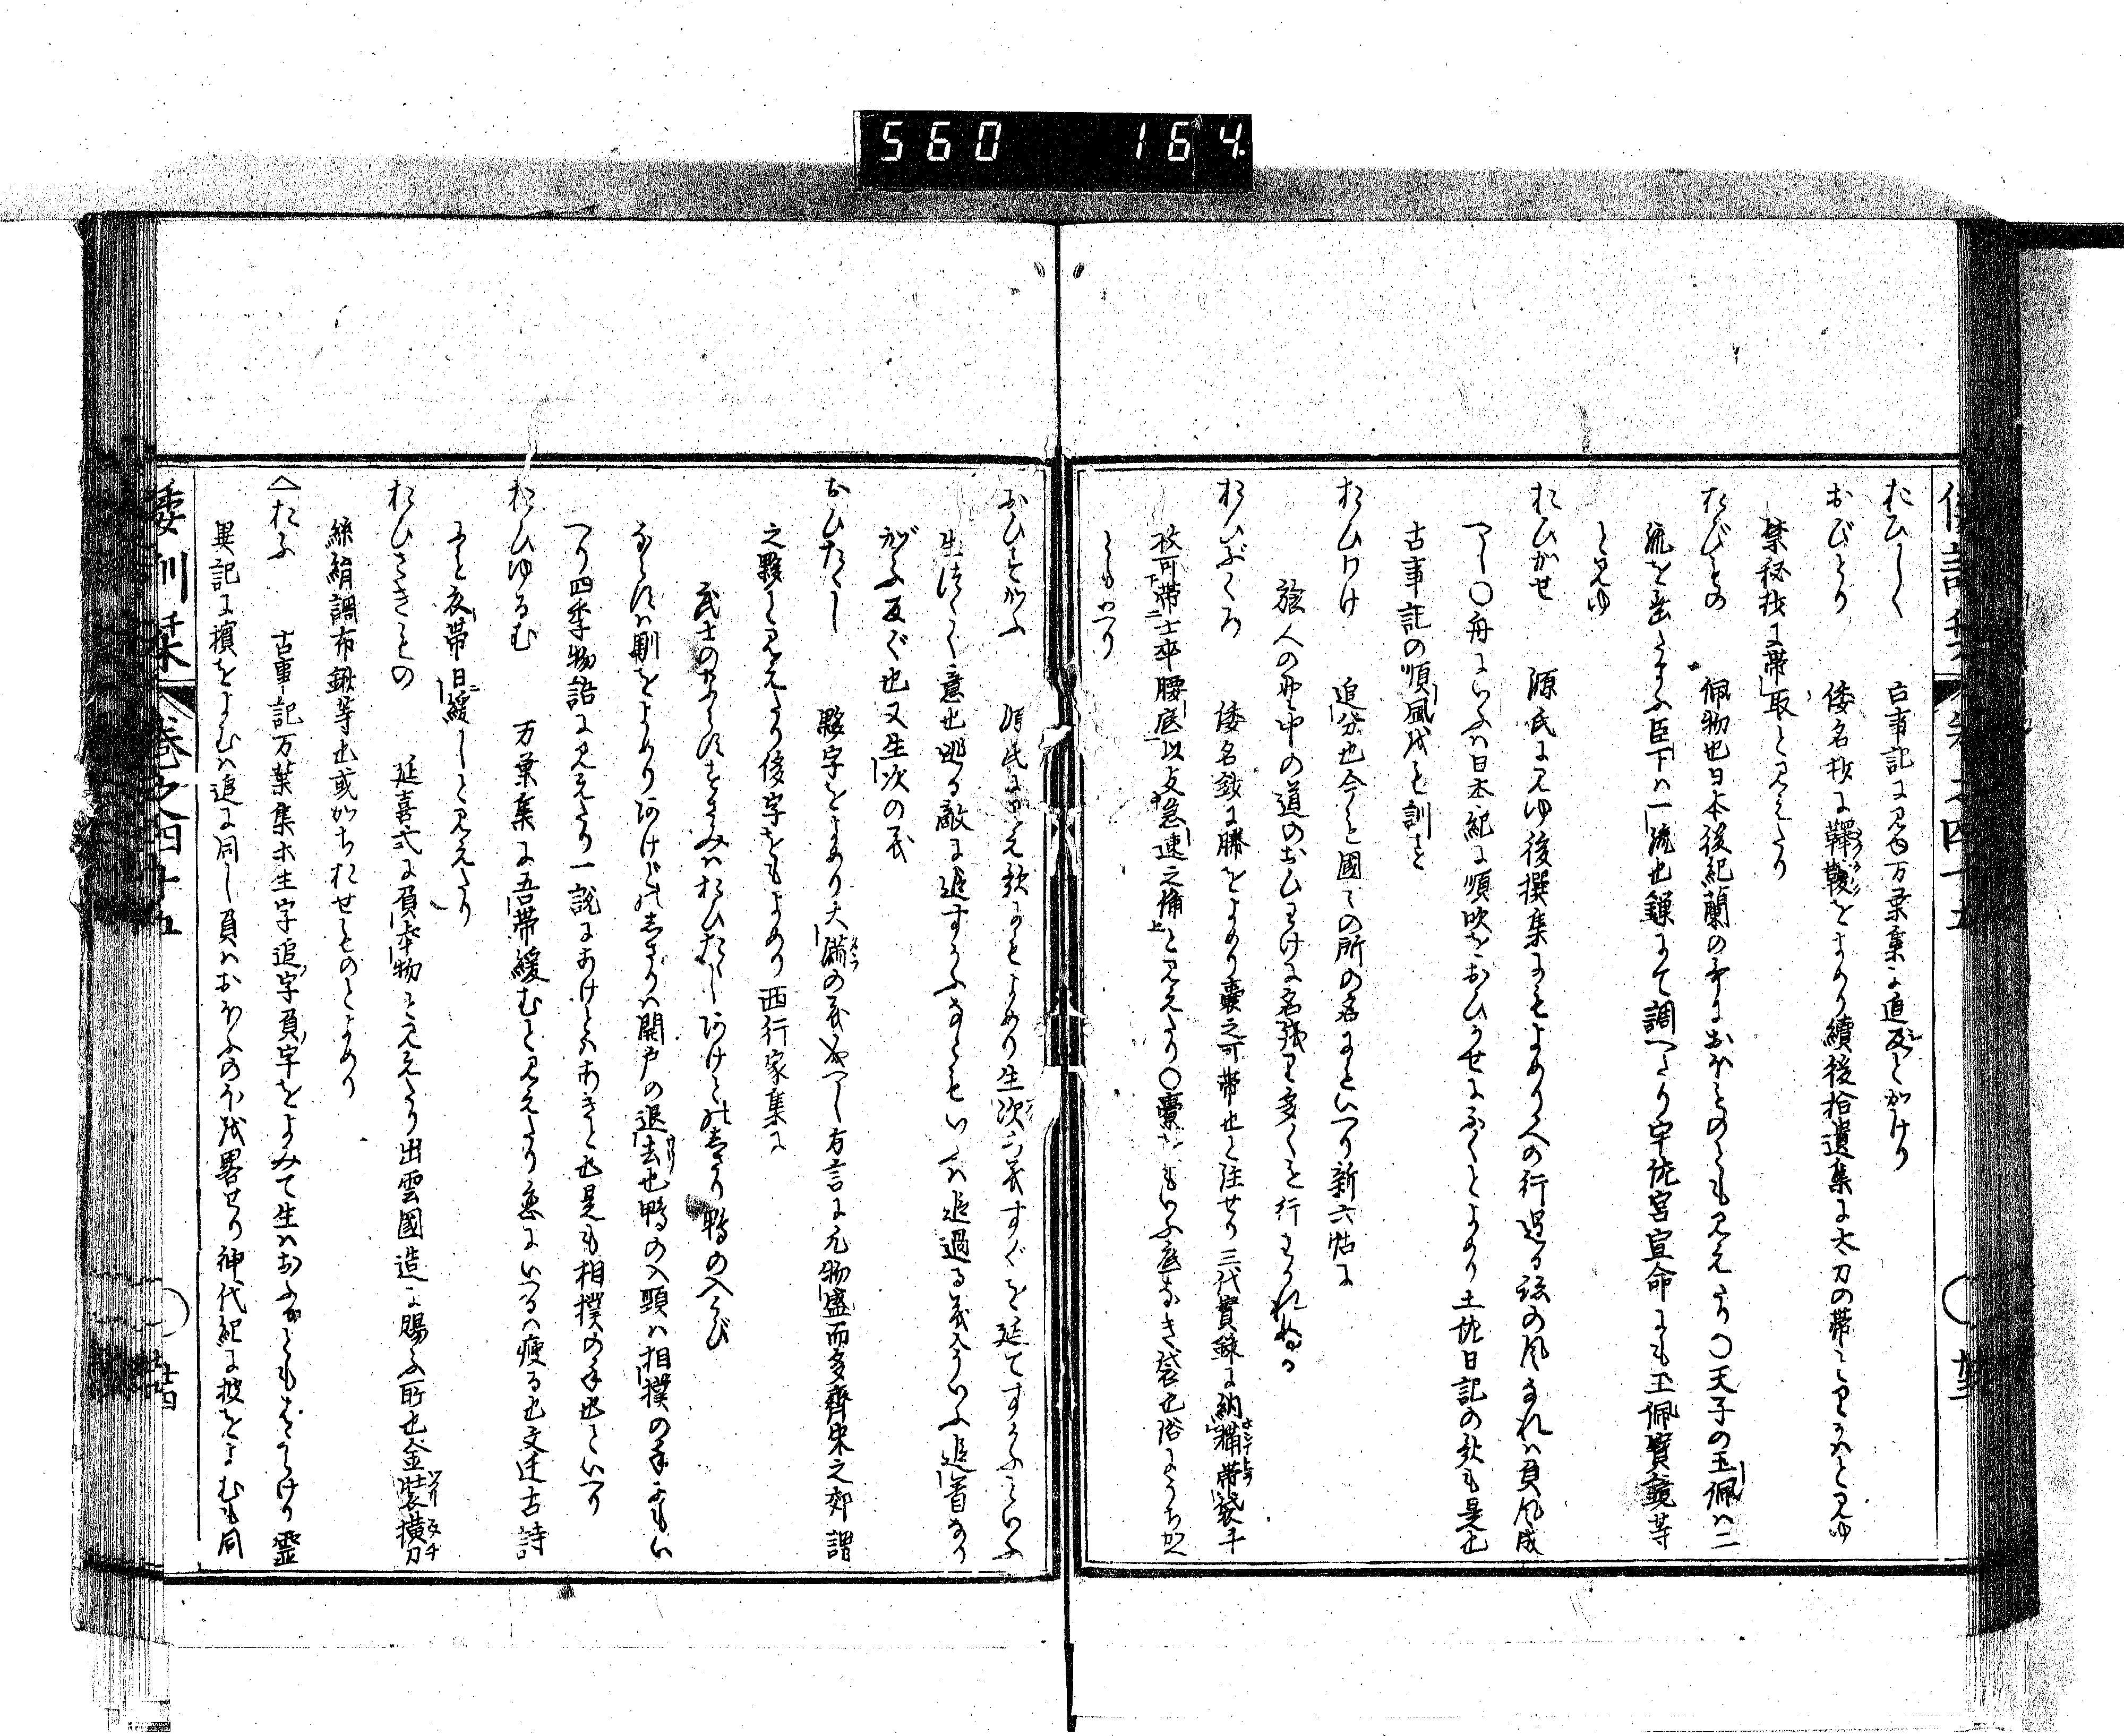 560 164
おひしく 古事記に見ゆ万葉集に追及とかけり
おびとり 倭名抄に鞸䪌をよめり續後拾遺集に太刀の帯とりかはと見ゆ
禁秘抄に帯取と見えたり
おびもの 佩物也日本後紀蘭の歌におびものとも見えたり〇天子の玉佩は二
流を垂たまふ臣下は一流也鎌にて調へたり宇佐宮宣命にも玉佩寶鏡等
と見ゆ
おひかせ 源氏に見ゆ後撰集にもよめり人の行過る後の風なれは負風成
へし〇舟にいふは日本紀に順吹をおひかせにふくとよめり土佐日記の歌も是也
古事記の順風をも訓す
おひわけ 追分也今も國々の所の名にもいへり新六帖に
旅人の野中の道のおひわけに名残も多くも行わかれぬる
おひぶくろ 倭名鈔に縢をよめり囊之可帯也と注せり三代實録に納糒帯袋千
枚可帯士卒腰底以支急速之備と見えたり〇橐をもいふ底なき袋也俗にうちかへ
ともいへり
おひすがふ 源氏にみえ歌にもよめり生次の義すぐを延てすがふといふ
生つゞく意也逃る敵に追すがふなともいへは追過る義又いふ追着なり
がふ反ぐ也又生次の義
おひたゝし 夥字をよめり大滿の義なるへし方言に凡物盛而多齊宋之郊謂
之夥と見えたり侈字をもよめり西行家集に
武士のならはすすさみはおひたゝしあけとのしさり鴨の入くび
ならはすは馴をよめりあけどのしさりは開戸の退去也鴨の入頸は相撲の手ともい
へり四季物語に見えたり一説にあけとはあきと也是も相撲の手也といへり
おひゆるむ 万葉集に吾帯緩むと見えたり恋にいへるは痩る也文選古詩
にも衣帯日緩しと見えたり
おひさきもの 延喜式に負幸物と見えたり出雲國造に賜ふ所也金装横刀
絲絹調布鍬等也或かちおせものとよめり
△おふ 古事記万葉集に生字追字負字をよみて生はおふるともはたらけり霊
異記に擯をよむは追に同し負はおほふのほを畧せり神代紀に披をよむも同
倭訓栞 巻之四十五 廿四